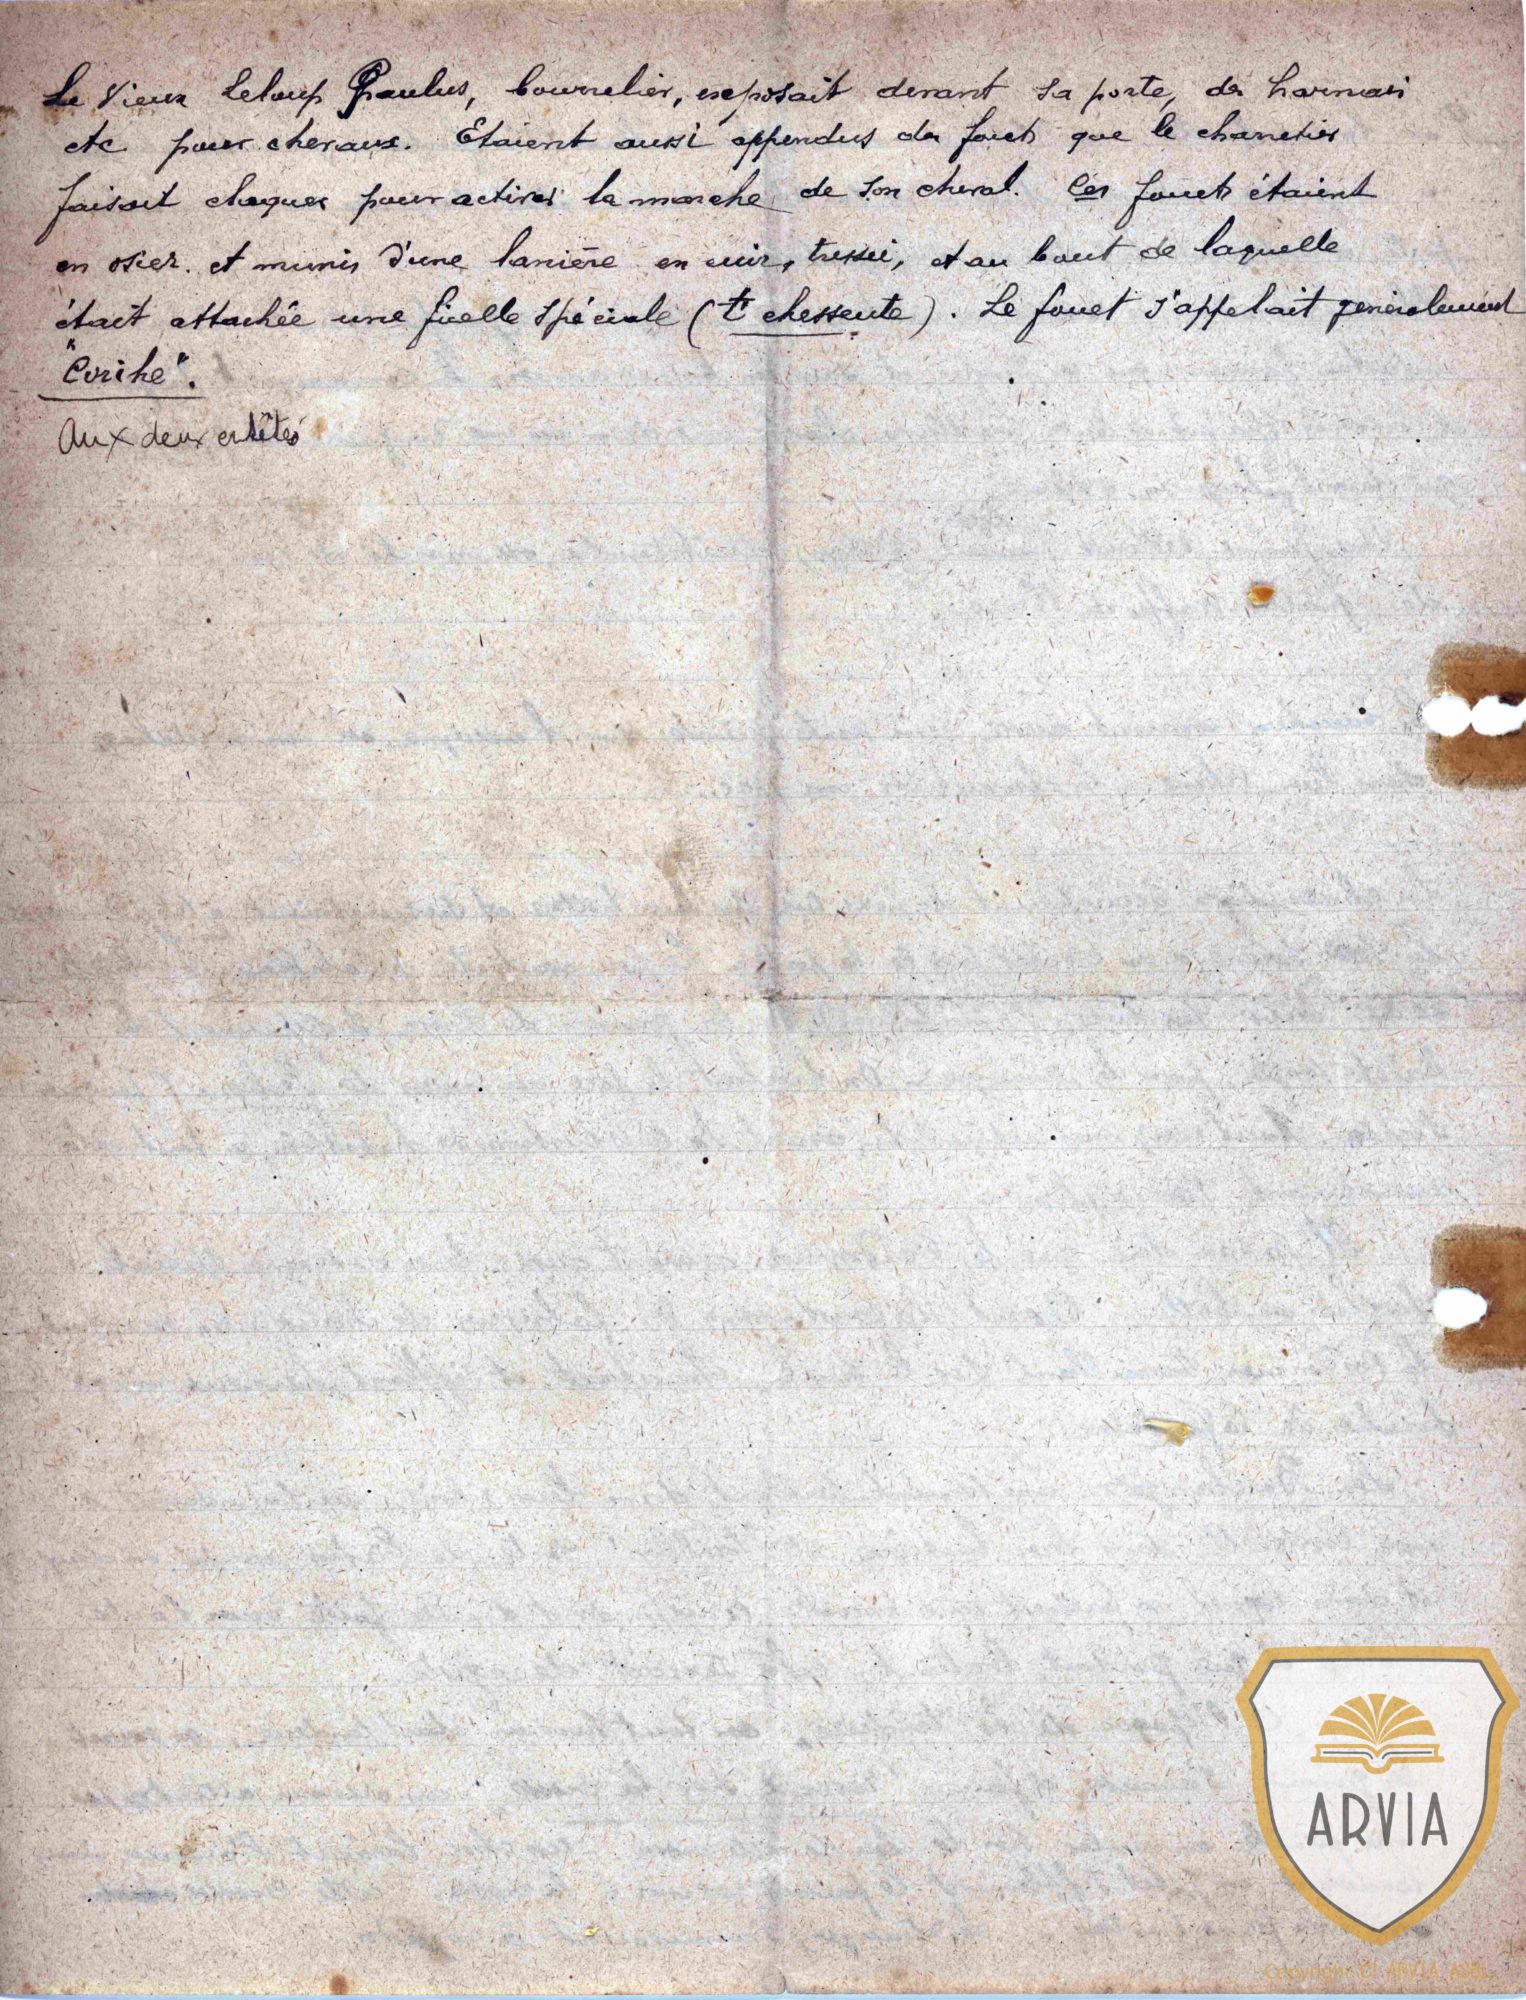 Le Vieux Leloup Paulus, bourrelier, exposait devant sa porte, des harnais
etc pour chevaux. Etaient aussi appendus des fouets que le charretier
faisait claquer pour activer la marche de son cheval. Ces fouets étaient
en osier. et munis d'une lanière en cuir, tressée, et au bout de laquelle
était attachée une ficelle spéciale (t' chessente). Le fouet s'appelait généralement
"Corihe".
Aux deux entêtés
ARVIA
Copyright © ARVIA ASBL